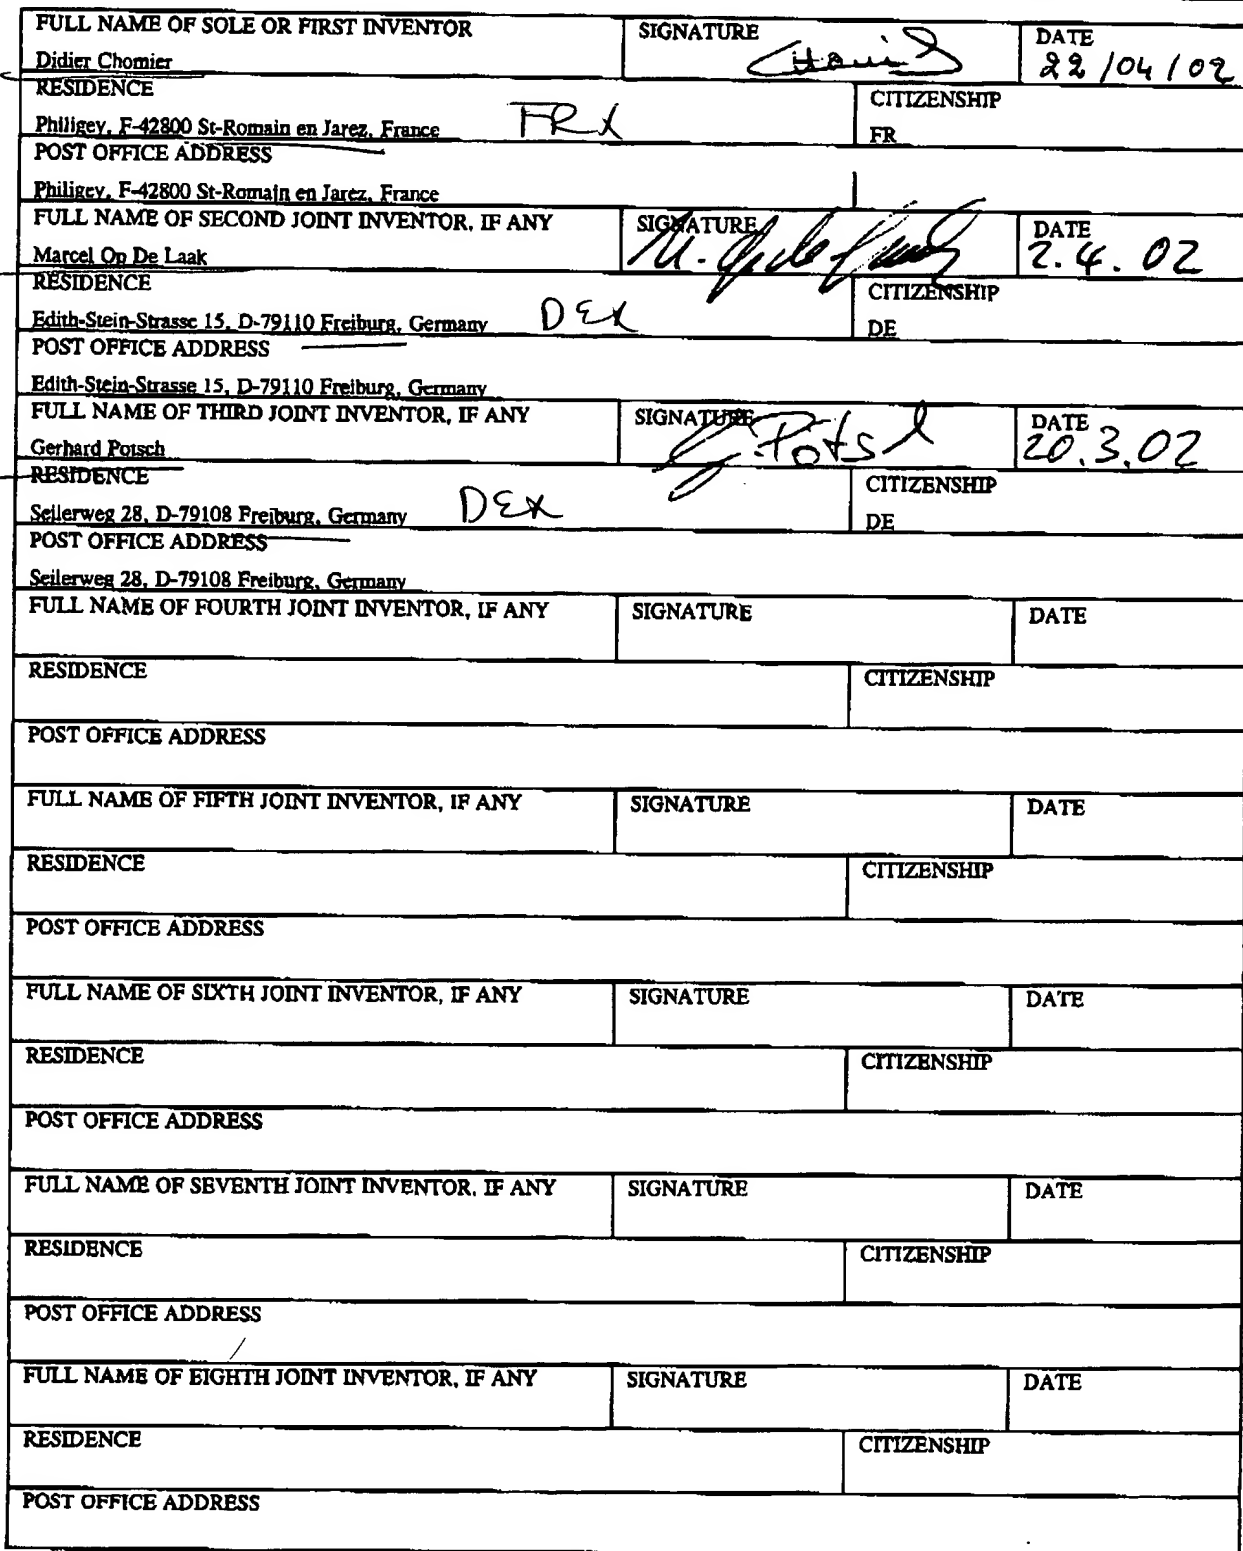 FULL NAME OF SOLE OR FIRST INVENTOR SIGNATURE DATE
Didier Chomier 22/04/02
RESIDENCE CITIZENSHIP
Philigey, F-42800 St-Romain en Jarez, France FRX FR
POST OFFICE ADDRESS
Philigey, F-42800 St-Romain en Jarez, France
FULL NAME OF SECOND JOINT INVENTOR, IF ANY SIGNATURE DATE
Marcel Op De Laak 2.4.02
RESIDENCE CITIZENSHIP
Edith-Stein-Strasse 15, D-79110 Freiburg, Germany DEX DE
POST OFFICE ADDRESS
Edith-Stein-Strasse 15, D-79110 Freiburg, Germany
FULL NAME OF THIRD JOINT INVENTOR, IF ANY SIGNATURE DATE
Gerhard Potsch 20.3.02
RESIDENCE CITIZENSHIP
Seilerweg 28, D-79108 Freiburg, Germany DEX DE
POST OFFICE ADDRESS
Seilerweg 28, D-79108 Freiburg, Germany
FULL NAME OF FOURTH JOINT INVENTOR, IF ANY SIGNATURE DATE
RESIDENCE CITIZENSHIP
POST OFFICE ADDRESS
FULL NAME OF FIFTH JOINT INVENTOR, IF ANY SIGNATURE DATE
RESIDENCE CITIZENSHIP
POST OFFICE ADDRESS
FULL NAME OF SIXTH JOINT INVENTOR, IF ANY SIGNATURE DATE
RESIDENCE CITIZENSHIP
POST OFFICE ADDRESS
FULL NAME OF SEVENTH JOINT INVENTOR, IF ANY SIGNATURE DATE
RESIDENCE CITIZENSHIP
POST OFFICE ADDRESS
FULL NAME OF EIGHTH JOINT INVENTOR, IF ANY SIGNATURE DATE
RESIDENCE CITIZENSHIP
POST OFFICE ADDRESS